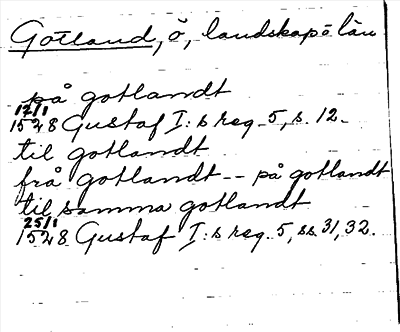 Gotland, ö, landskap o län
på gotlandt
17/1
1528 Gustaf I:s reg. 5, s. 12.
til gotlandt
frå gotlandt -- på gotlandt
til samma gotlandt
25/1
1528 Gustaf I:s reg. 5, ss. 31, 32.